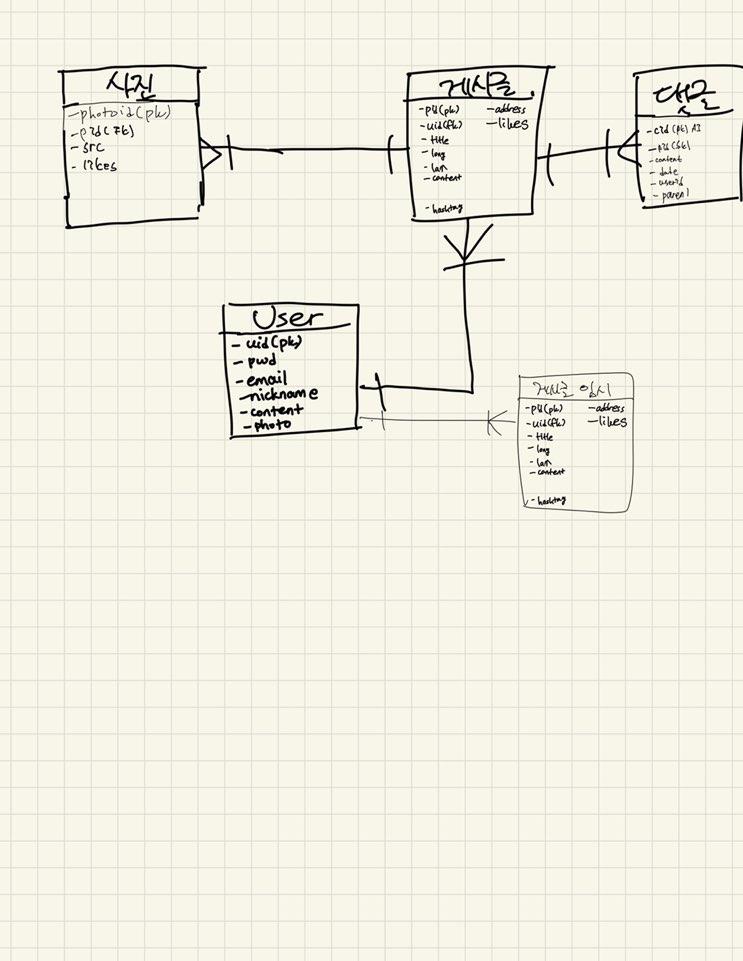 사진
-photoid(pk)
-pid(fk)
-src
-likes
게시글
-pid(pk)
-uid(fk)
-title
-long
-lan
-content
-hashtag
-address
-likes
댓글
-cid(pk) AI
-pid(fk)
-content
-date
-userid
-parent
User
-uid(pk)
-pwd
-email
-nickname
-content
-photo
게시글 임시
-pid(pk)
-uid(fk)
-title
-long
-lan
-content
-hashtag
-address
-likes